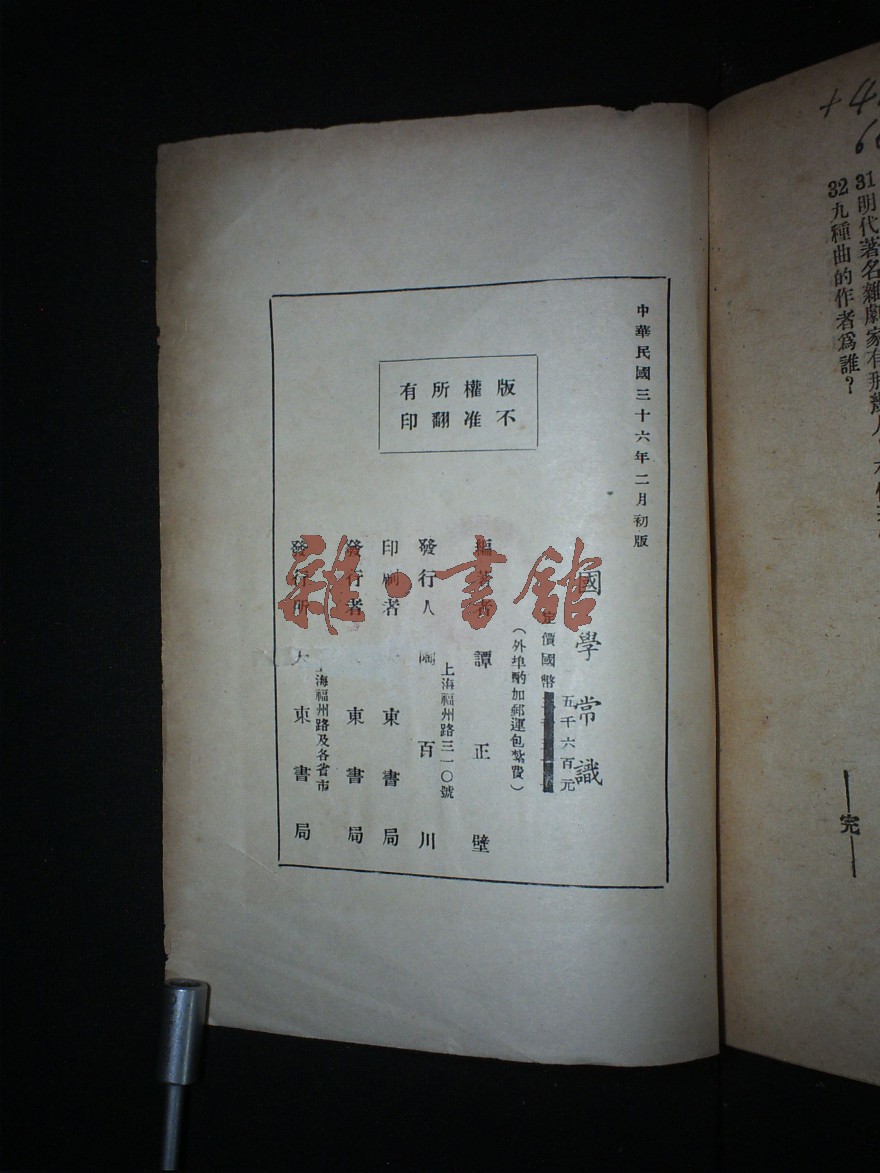 31明代著名雜劇家有那幾人?
32九種曲的作者爲誰?
—完—
中華民國三十六年二月初版
版權所有
不准翻印
國學常識
五千六百元
定價國幣
(外埠酌加郵運包紮費)
編著者 譚正璧
上海福州路三一〇號
發行人 陶百川
印刷者 大東書局
發行者 大東書局
上海福州路及各省市
發行所 大東書局
雜·書館